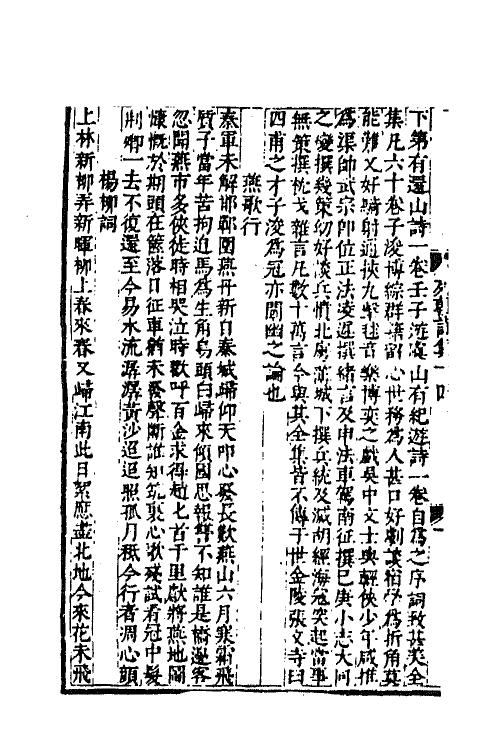 列朝詩集
下第有還山詩一卷壬子遊嵩山有紀遊詩一卷自爲之序詞致甚美全
集凡六十卷子浚博綜群籍留心世務爲人甚口好劇談招學爲折角莫
能難又好騎射遊挾九擊毬音樂博奕之戲吳中文士與輕俠少年咸推
爲渠帥武宗卽位正法凌遲撰緒言及申法車駕南征撰巳庚小志大同
之變撰幾策幼好談兵憤北虜薄城下撰兵統及滅胡經海寇突起當事
無策撰枕戈雜言凡數十萬言今與其全集皆不傳于世金陵張文寺曰
四甫之才子浚爲冠亦闡幽之論也
燕歌行
秦軍未解邯鄲圍燕丹新自秦城歸仰天叩心發長歎燕山六月寒霜飛
質子當年苦拘迫馬爲生角烏頭白歸來傾國思報讐不知誰是橋邊客
忽聞燕市多俠徒時相哭泣時歡呼百金求得趙匕首千里獻將燕地圖
慷慨於期頭在篋落日征車猶未發聲斷誰知筑裏心歌殘試看冠中髮
荆卿一去不復還至今易水流潺潺黃沙迢迢照孤月秪今行者凋心顏
楊柳詞
上林新柳弄新暉柳上春來春又歸江南此日絮應盡北地今來花未飛